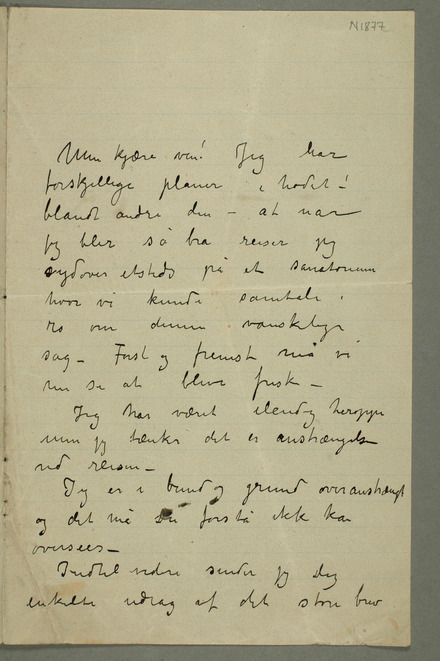 N1877
Min kjære ven! Jeg har
forskjellige planer i hodet –
blandt andre den – at nar
jeg blir så bra reiser jeg
sydover etsteds på et sanatorium
hvor vi kunde samtale i
ro om denne vanskelige
sag – Først og fremst må vi
nu se at blive frisk –
Jeg har været elendig heroppe
men jeg tænker det er anstrængelsen
ved reisen –
Jeg er i bund og grund overanstrængt
og det må du forstå ikke kan
oversees –
Indtil videre sender jeg Dig
enkelte udrag af det store brev